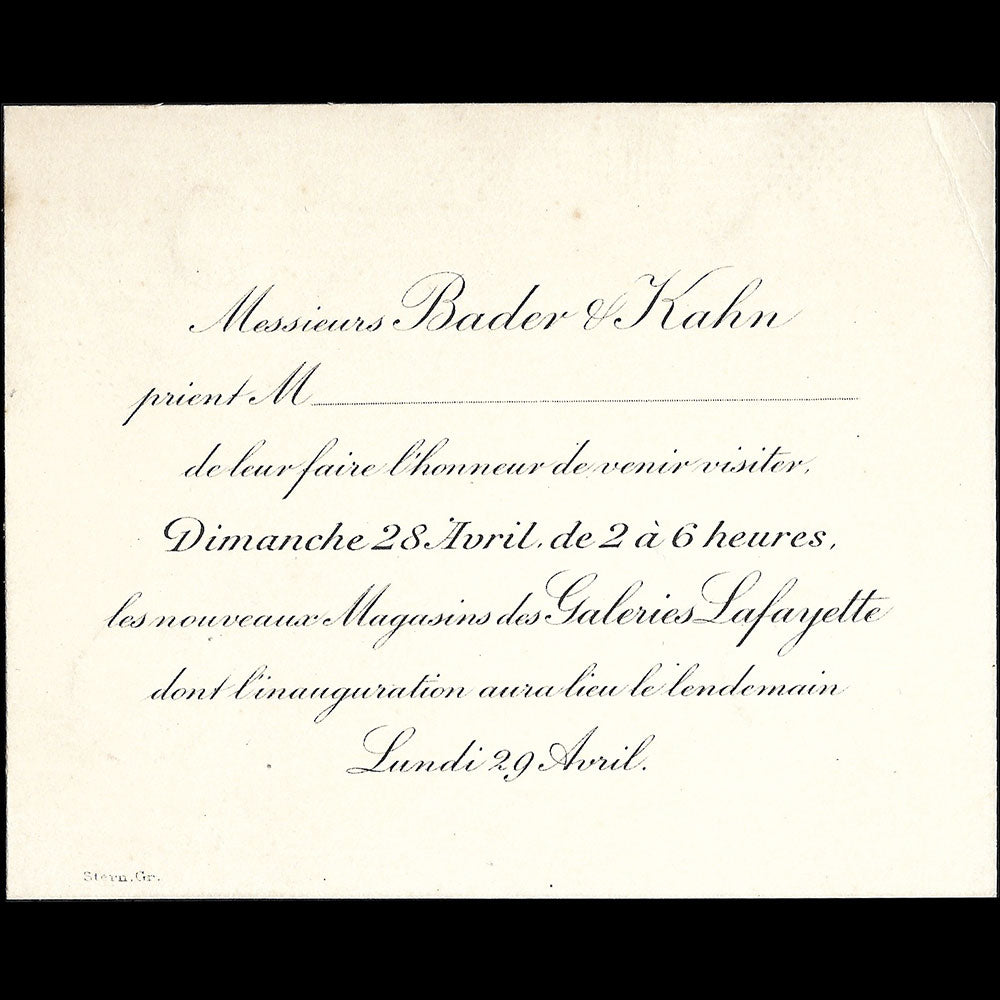 Messieurs Bader & Kahn
prient M
de leur faire l'honneur de venir visiter,
Dimanche 28 Avril, de 2 à 6 heures,
les nouveaux Magasins des Galeries Lafayette
dont l'inauguration aura lieu le lendemain
Lundi 29 Avril.
Stern. Gr.